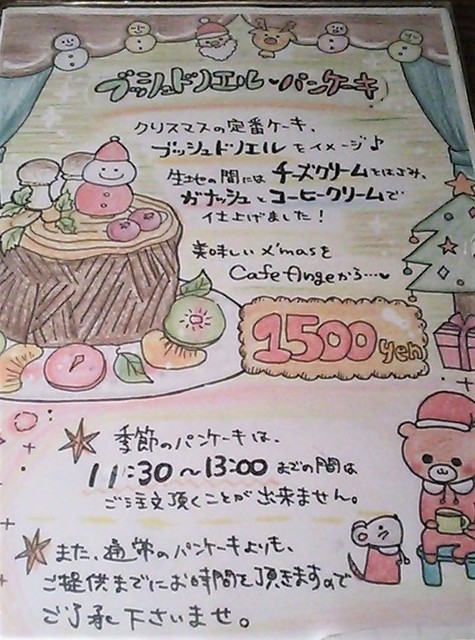 ブッシュドノエル・パンケーキ
クリスマスの定番ケーキ、
ブッシュドノエルをイメージ♪
生地の間にはチーズクリームをはさみ、
ガナッシュとコーヒークリームで
仕上げました！
美味しいX'masを
Cafe Angeから…♥
1500yen
季節のパンケーキは、
11:30〜13:00までの間は
ご注文頂くことが出来ません。
また、通常のパンケーキよりも、
ご提供までにお時間を頂きますので
ご了承下さいませ。